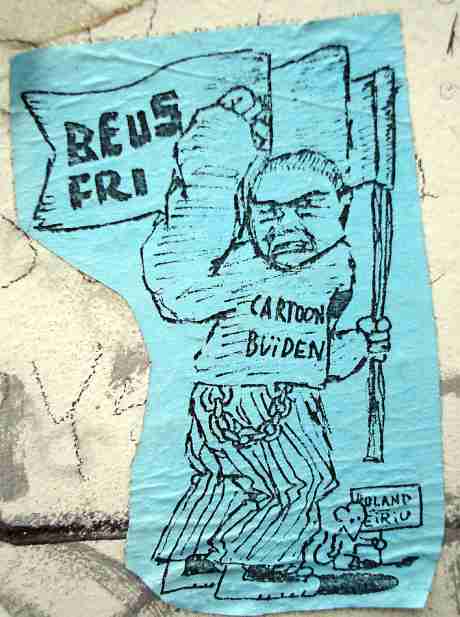 REUS
FRI
CARTOON
BUIDEN
ROLAND
EIRIU